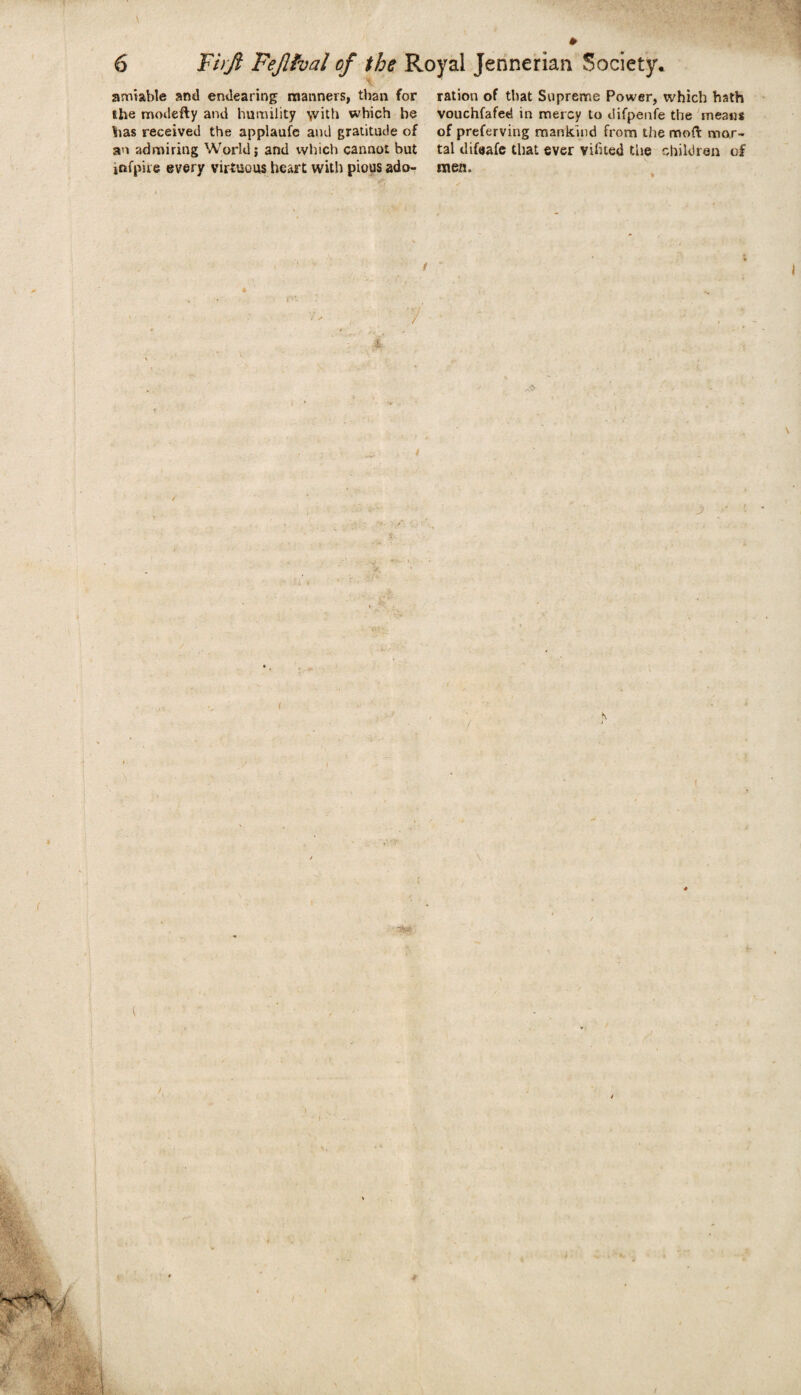 6 Firſt Feſtival of the Royal Jennerian Society.
amiable and endearing manners, than for
the modeſty and humility with which he
has received the applauſe and gratitude of
an admiring World; and which cannot but
inſpire every virtuous heart with pious ado-
ration of that Supreme Power, which hath
vouchſafed in mercy to diſpenſe the means
of preſerving mankind from the moſt mor-
tal diſeaſe that ever viſited the children of
men.